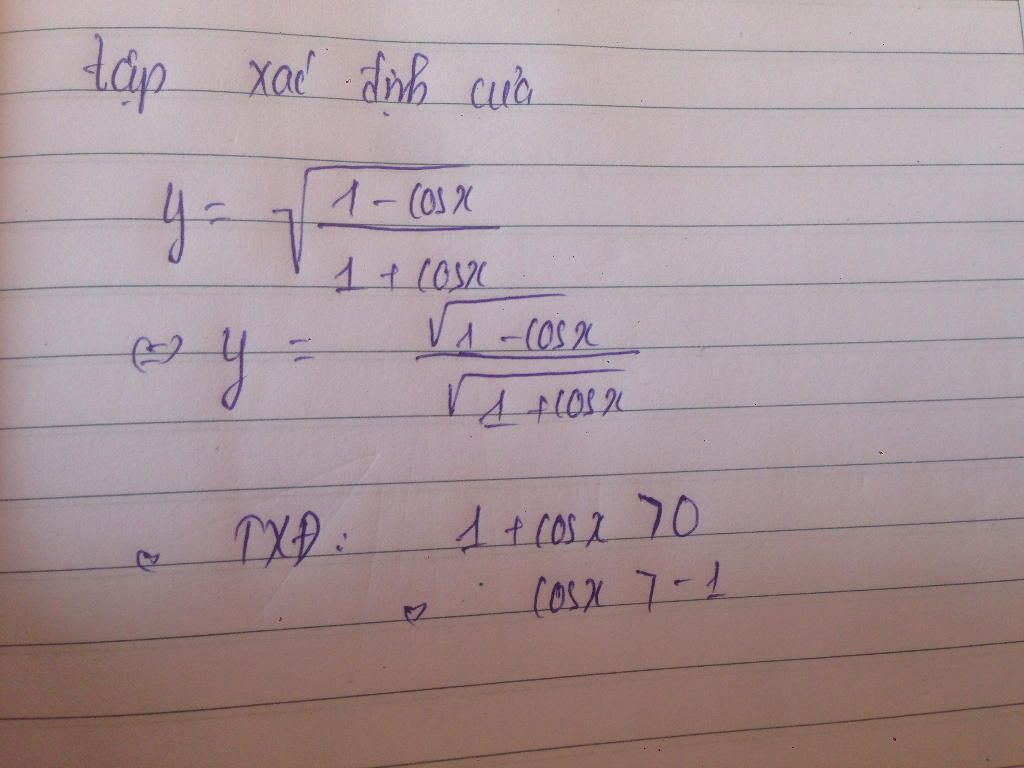 tập xác định của
y = √(1 - cosx / 1 + cosx)
⇔ y = √(1 - cosx) / √(1 + cosx)
⇔ TXĐ: 1 + cosx > 0
⇔ cosx > -1